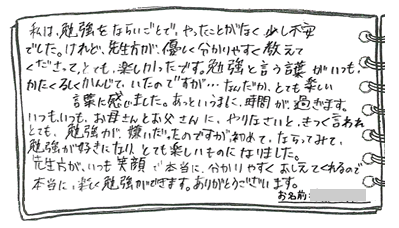 私は、勉強をならいごとで、やったことがなく少し不安
でした。けれど、先生方が、優しく分かりやすく教えて
くださって、とても、楽しかったです。勉強と言う言葉がいつも、
かたくるしくかんじて、いたのですが…なんだか、とても楽しい
言葉に感じました。あっというまに、時間が、過ぎます。
いつも、いつも、お母さんとお父さんに、やりなさいと、きつく言われ
とても、勉強が、嫌いだったものですが初めて、ならってみて、
勉強が好きになり、とても楽しいものになりました。
先生方が、いつも笑顔で本当に、分かりやすくおしえてくれるので
本当に、楽しく勉強ができます。ありがとうございます。
お名前: